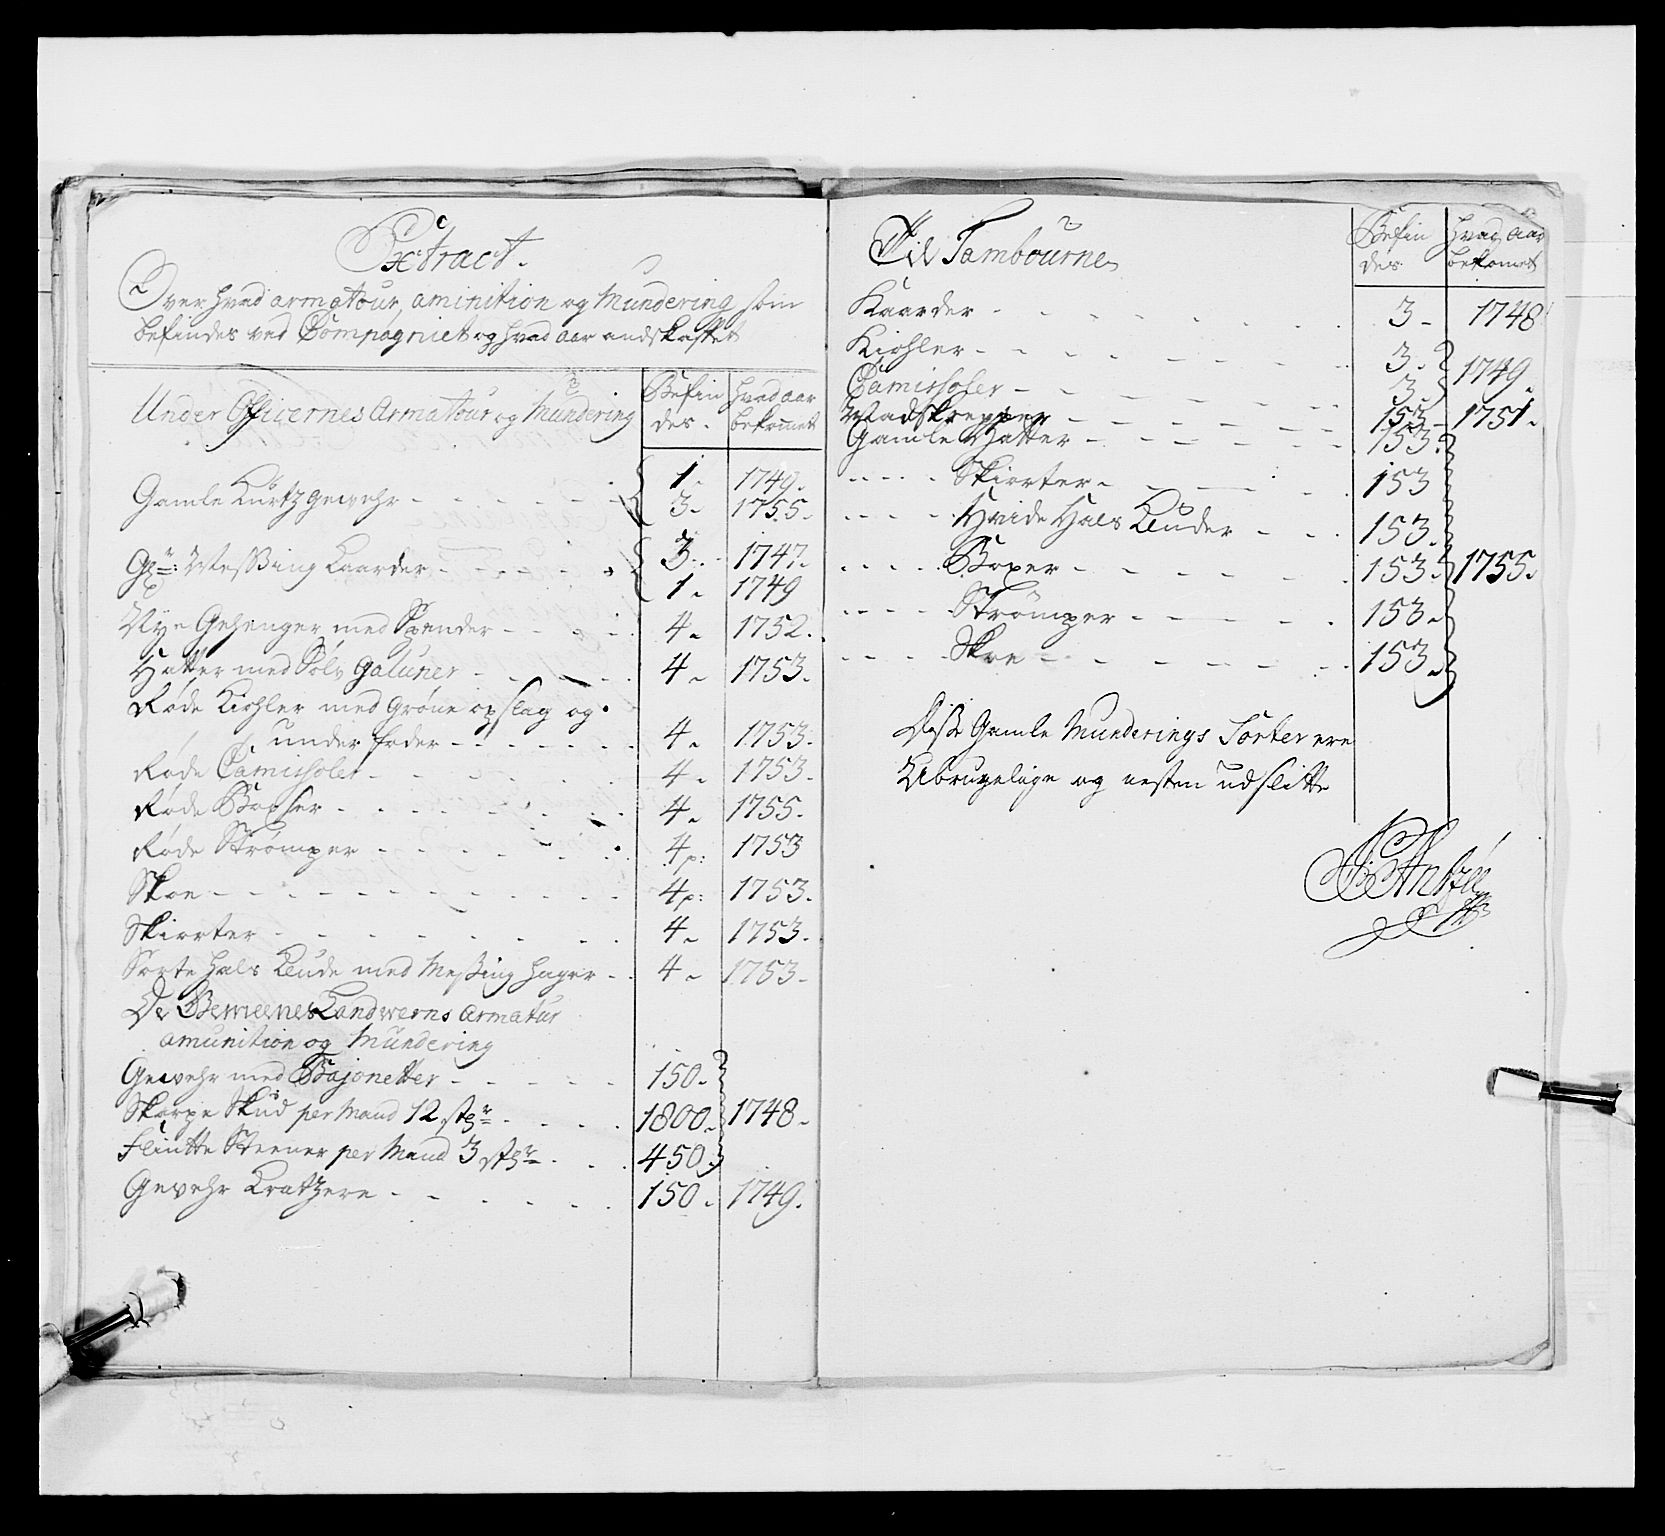 Extract.
Over hvad armatour, aminition og Mundering som
befindes ved Compagniet og hvad aar andskaffet
Under Officernes Armatour og Mundering Befin des. hvad aar bekomet
Gamle Kurtz gewehr - - - - - 1. 1749.
3. 1755.
Messing Kaarder - - - - - 3. 1747.
1. 1749
Nye Gehenger med Spender - - - 4. 1752.
Hatter med Sølv galuner - - - 4. 1753.
Røde Kiohler med grøne opslag og
under foder - - - - - - 4. 1753.
Røde Camisholer - - - - - 4. 1753.
Røde Boxser - - - - - - 4. 1755.
Røde Strømper - - - - - 4 p: 1753
Skoe - - - - - - - - 4 p: 1753.
Skiorter - - - - - - - 4. 1753.
Sorte hals Klude med Messing hager - 4. 1753.
De Gemeenes Landwerns armatur
amunition og Mundering
Gewehr med Bajonetter - - - - - 150.
Skarpe Skud per Mand 12 stkr - - - 1800. 1748.
Flintte Steener per Mand 3 stkr - - - 450.
Gewehr Kratzere - - - - - 150. 1749.
Til Tambourne Befin des. hvad aar bekomet
Kaarder - - - - - - - 3. 1748
Kiohler - - - - - - - 3.
Camisholer - - - - - - 3. 1749.
Madskrepper - - - - - - 153. 1751.
Gamle Hatter - - - - - - 153.
- - - - Skiorter - - - - 153
- - - - Hvide Hals Kluder - - - 153.
- - - - Boxer - - - - - - 153. 1755.
- - - - Strømper - - - - - 153.
- - - - Skoe - - - - - - 153.
Disse Gamle Munderings Sorter ere
Ubrugelige og nesten udslitte